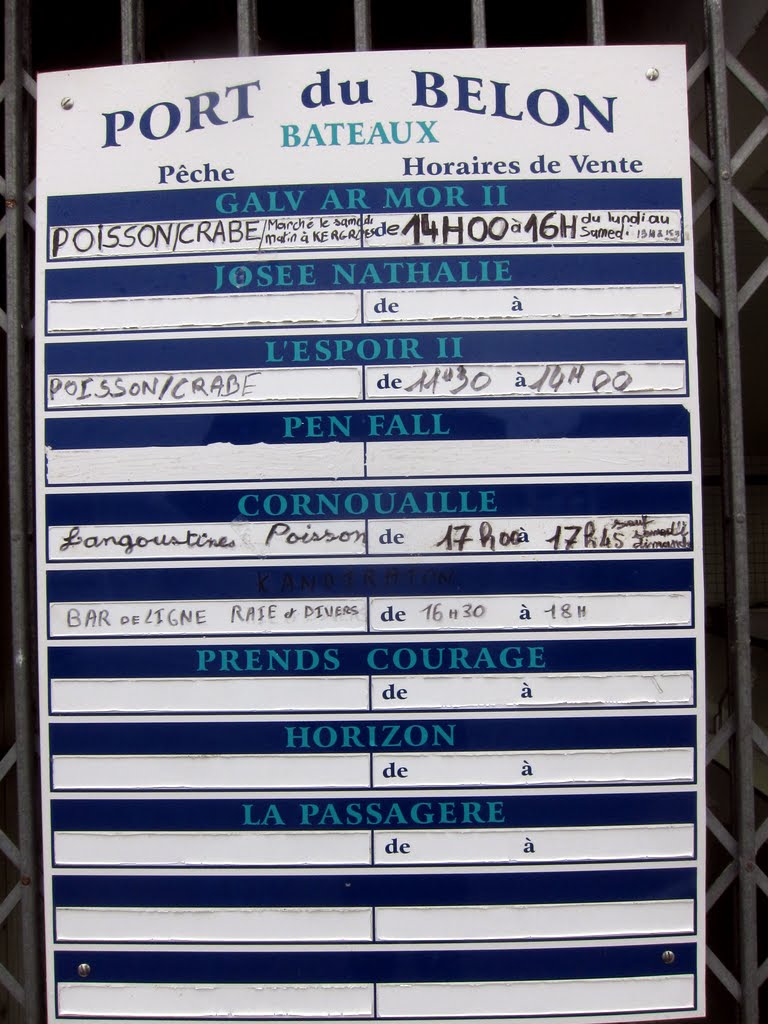 PORT du BELON
BATEAUX
Pêche Horaires de Vente
GALV AR MOR II
POISSON/CRABE/ Marché le samedi matin à de 14H00 à 16H du lundi au Samedi
JOSEE NATHALIE
de à
L'ESPOIR II
POISSON/CRABE de 11H30 à 14H00
PEN FALL
CORNOUAILLE
Langoustines Poisson de 17h00 à 17h45 sauf samedi dimanche
BAR DE LIGNE RAIE et DIVERS de 16H30 à 18H
PRENDS COURAGE
de à
HORIZON
de à
LA PASSAGERE
de à